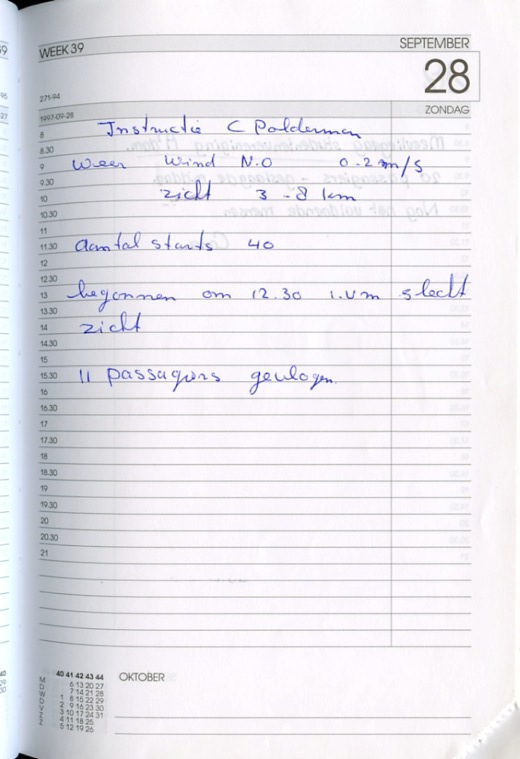 WEEK 39
SEPTEMBER
28
271-94
ZONDAG
1997-09-28
8 Instructie C Polderman
8.30
9 Weer Wind N.O 0.2 m/s
9.30
10 zicht 3 - 8 km
10.30
11
11.30 aantal starts 40
12
12.30
13 begonnen om 12.30 i.v.m slecht
13.30
14 zicht
14.30
15
15.30 11 passagiers gevlogen.
16
16.30
17
17.30
18
18.30
19
19.30
20
20.30
21
40 41 42 43 44
OKTOBER
M 6 13 20 27
D 7 14 21 28
W 1 8 15 22 29
D 2 9 16 23 30
V 3 10 17 24 31
Z 4 11 18 25
Z 5 12 19 26